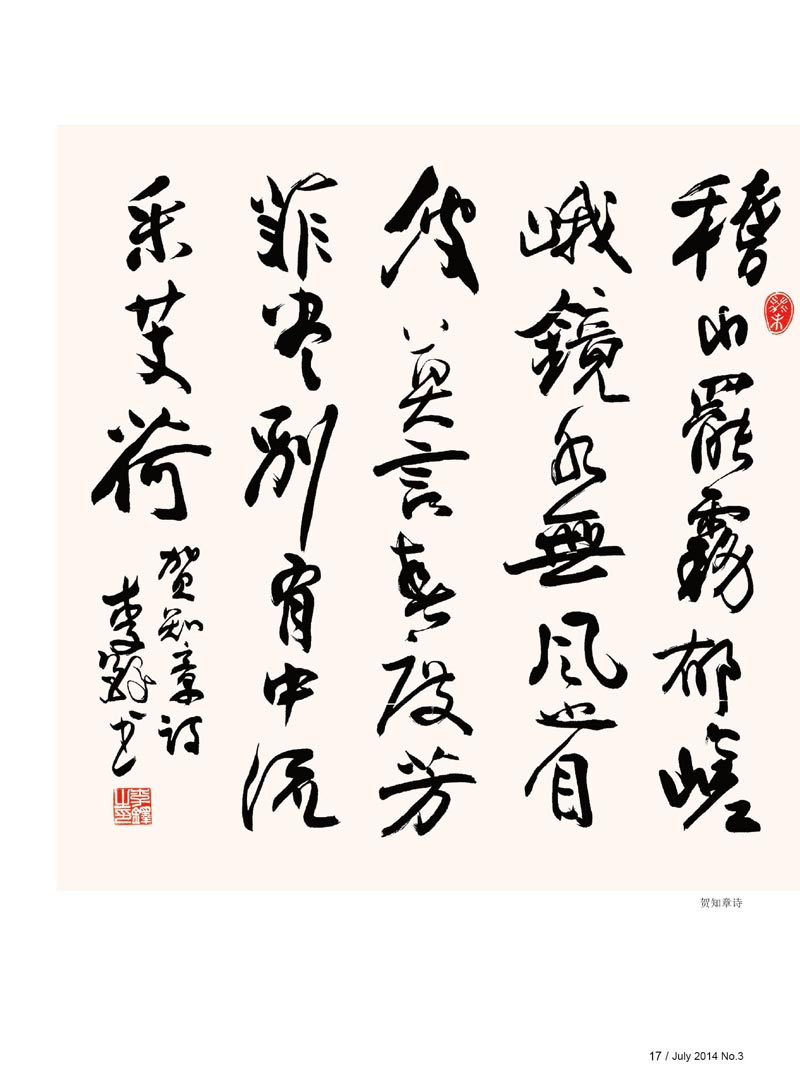 稽山罷霧郁嵯
峨鏡水無风也自
波莫言春度芳
菲尽别有中流
采芰荷
贺知章诗
李鐸书
李鐸之印
贺知章诗
17 / July 2014 No.3